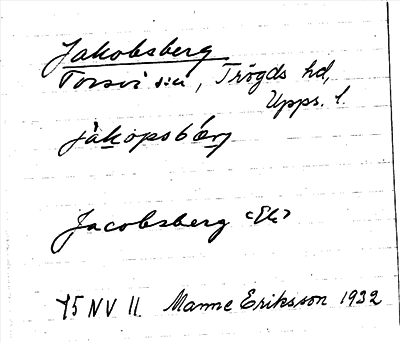 Jakobsberg
Torsvi sn, Trögds hd,
Upps. l.
jakopsbærj
Jacobsberg <Ek>
75 NV 11 Manne Eriksson 1932